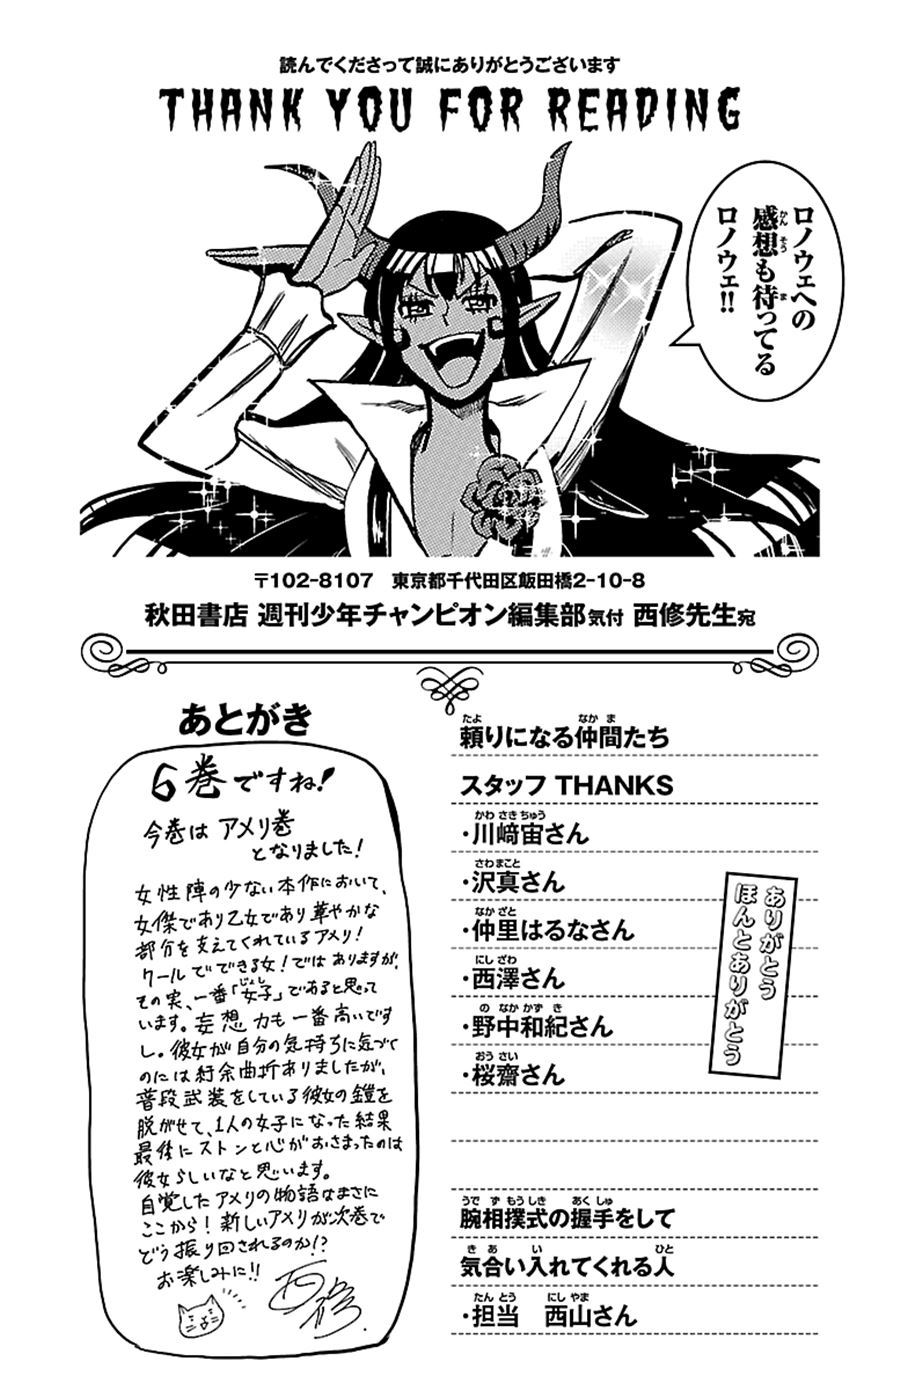 読んでくださって誠にありがとうございます
THANK YOU FOR READING
ロノウェへの
感想も待ってる
ロノウェ!!
〒102-8107　東京都千代田区飯田橋2-10-8
秋田書店 週刊少年チャンピオン編集部気付 西修先生宛
あとがき
6巻ですね!
今巻は アメリ巻
となりました!
女性陣の少ない本作において、
女傑であり乙女であり華やかな
部分を支えてくれているアメリ!
クールでできる女!ではありますが、
その実、一番「女子」であると思って
います。妄想力も一番高いです
し。彼女が自分の気持ちに気づく
のには紆余曲折ありましたが、
普段武装をしている彼女の鎧を
脱がせて、1人の女子になった結果
最後にストンと心がおさまったのは
彼女らしいなと思います。
自覚したアメリの物語はまさに
ここから!新しいアメリが次巻で
どう振り回されるのか!?
お楽しみに!!
西修
頼りになる仲間たち
スタッフ THANKS
・川﨑宙さん
・沢真さん
・仲里はるなさん
・西澤さん
・野中和紀さん
・桜齋さん
ありがとう
ほんとありがとう
腕相撲式の握手をして
気合い入れてくれる人
・担当　西山さん